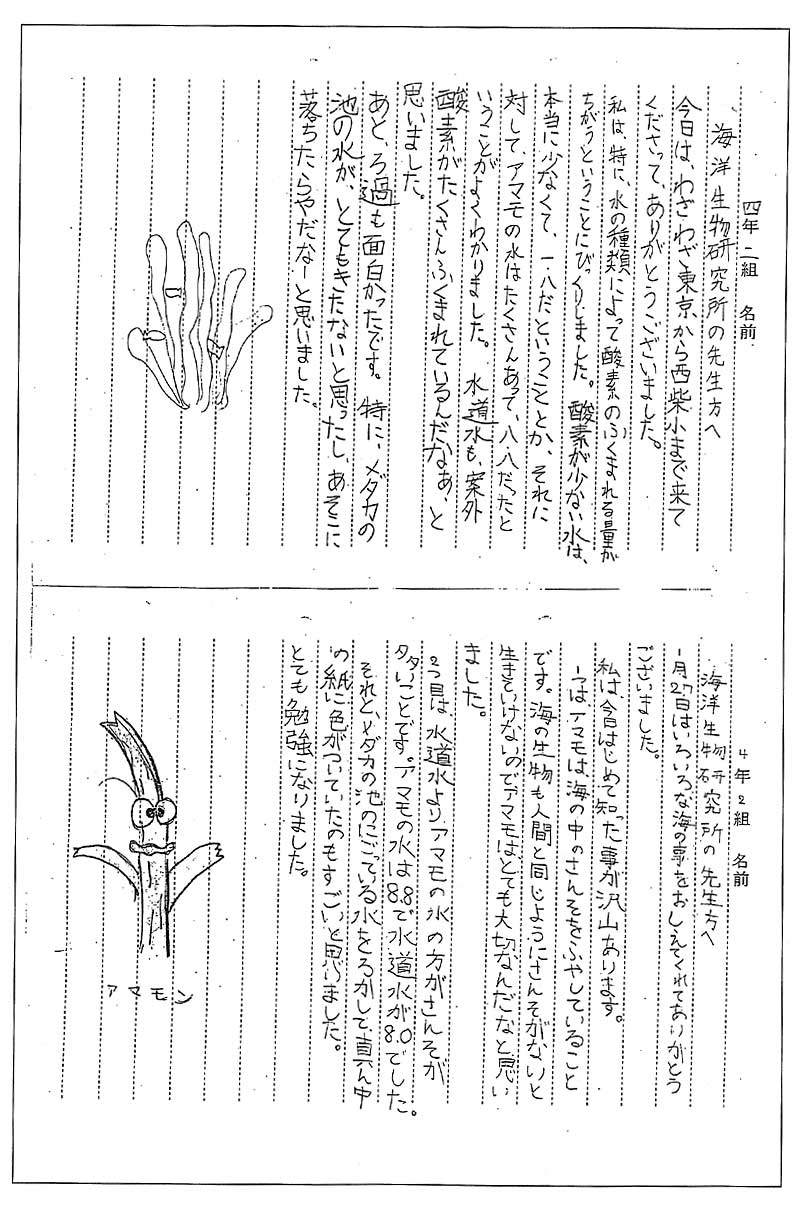 四年二組 名前
海洋生物研究所の先生方へ
今日は、わざわざ東京から西柴小まで来て
くださって、ありがとうございました。
私は、特に、水の種類によって酸素のふくまれる量が
ちがうということにびっくりしました。酸素が少ない水は、
本当に少なくて、一.八だということとか、それに
対して、アマモの水はたくさんあって、八.八だったと
いうことがよくわかりました。水道水も、案外
酸素がたくさんふくまれているんだなぁ、と
思いました。
あと、ろ過も面白かったです。特に、メダカの
池の水が、とてもきたないと思ったし、あそこに
落ちたらやだなーと思いました。
4年2組 名前
海洋生物研究所の先生方へ
1月27日はいろいろな海の事をおしえてくれてありがとう
ございました。
私は、今日はじめて知った事が沢山あります。
一つは、アマモは、海の中のさんそをふやしていること
です。海の生物も人間と同じようにさんそがないと
生きていけないのでアマモは、とても大切なんだなと思い
ました。
2つ目は、水道水よりアマモの水の方がさんそが
多いことです。アマモの水は8.8で水道水が8.0でした。
それと、メダカの池のにごっている水をろかして、真ん中
の紙に色がついていたのもすごいと思いました。
とても勉強になりました。
アマモン